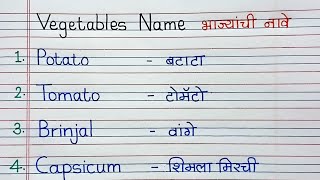 Vegetables Name भाज्यांची नावे
1. Potato - बटाटा
2. Tomato - टोमॅटो
3. Brinjal - वांगे
4. Capsicum - शिमला मिरची